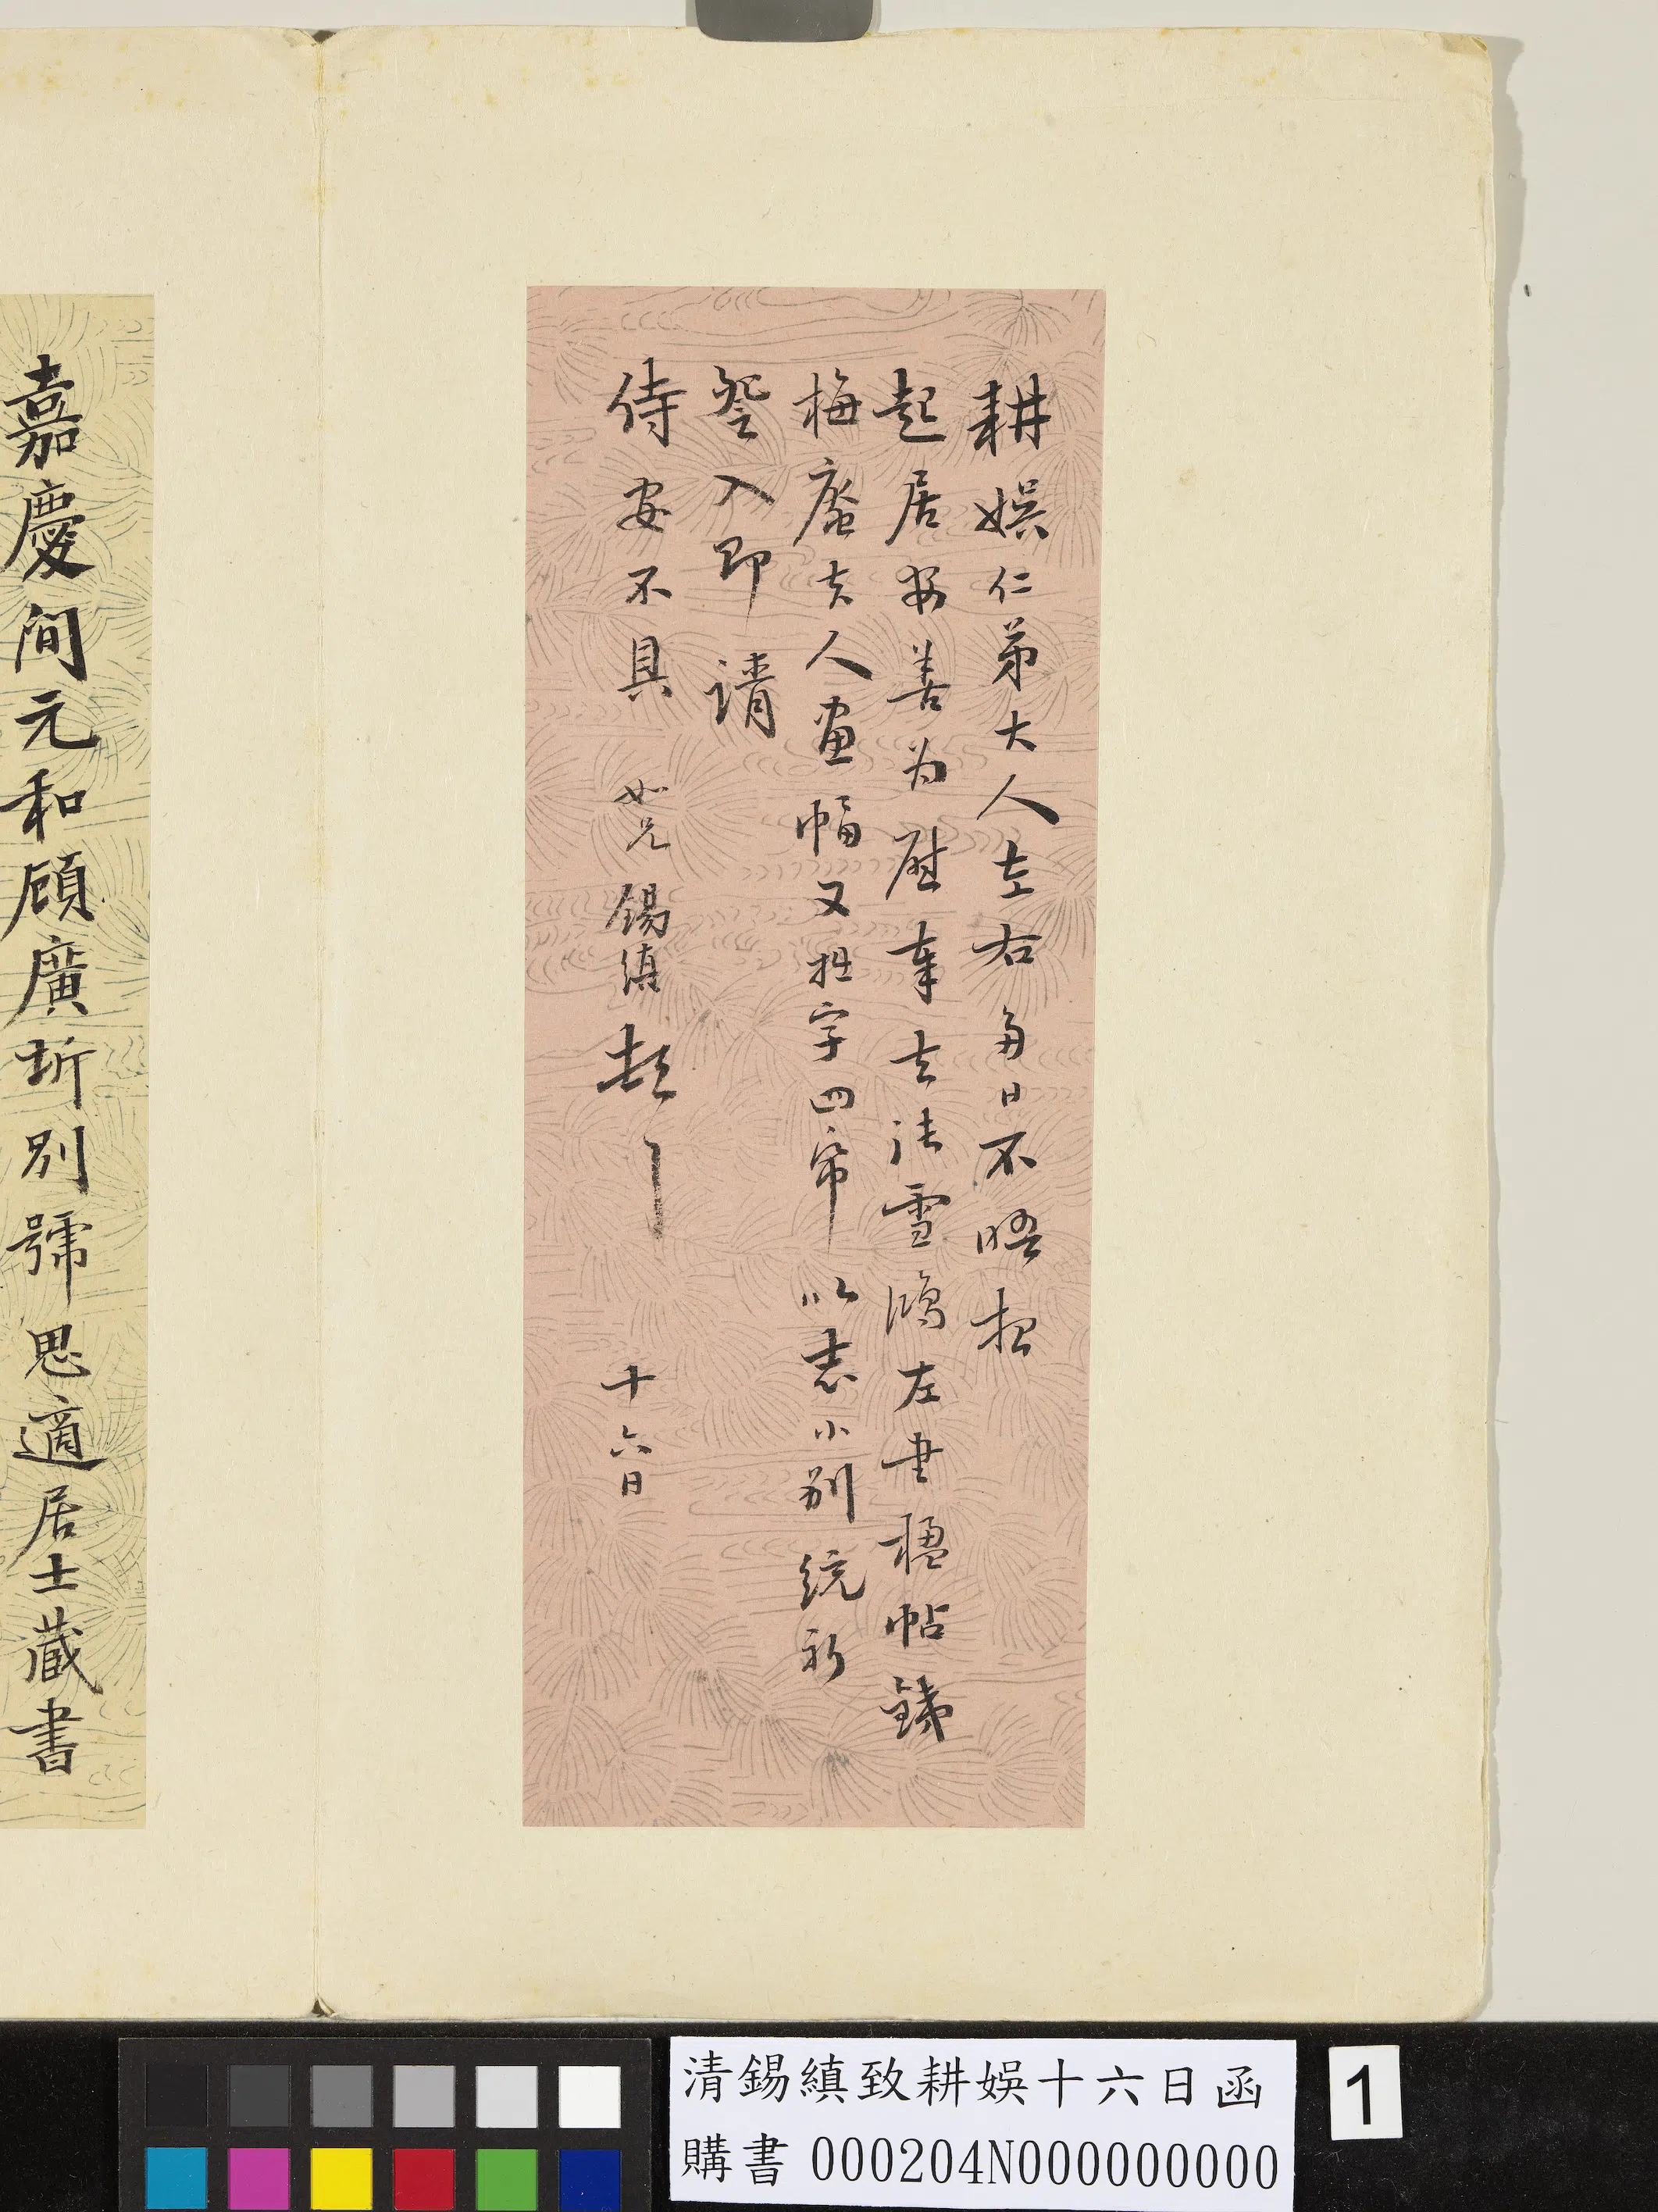 耕娛仁弟大人左右多日不晤想
起居安善为慰奉去法雪鴻左書楹帖
梅庵夫人画幅又拙字四帋以志小别統祈
詧入即請
侍安不具 如兄錫縝頓丨 十六日
嘉慶間元和顧廣圻別號思適居士藏書
清錫縝致耕娛十六日函
購書 000204N000000000
1